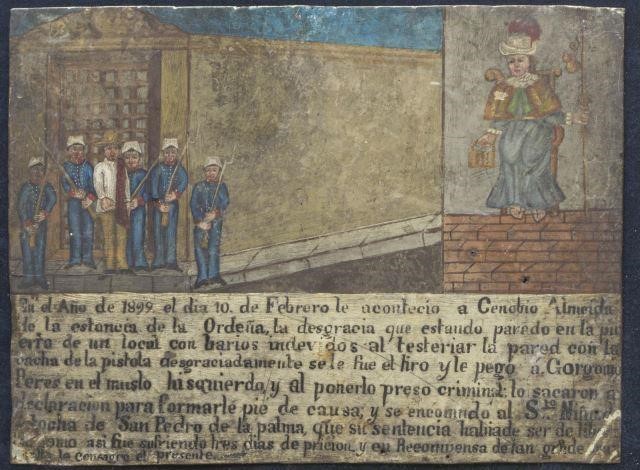 En el Año de 1899 el dia 10. de Febrero le acontecio a Cenobio Almeida
de la estancia de la Ordeña, la desgracia que estando parado en la pu
erta de un local con barios indev dos al testeriar la pared con la
cacha de la pistola desgraciadamente se le fue el tiro y le pego a Gorgonio
Peres en el muslo hisquierdo, y al ponerlo preso criminal lo sacaron a
declaracion para formarle pie de causa; y se encomido al Sto Niño
tocha de San Pedro de la palma, que su sentencia habia de ser de libre
como asi fue sufriendo tres dias de pricion, y en Recompensa de tan grande
la consagro el presente.